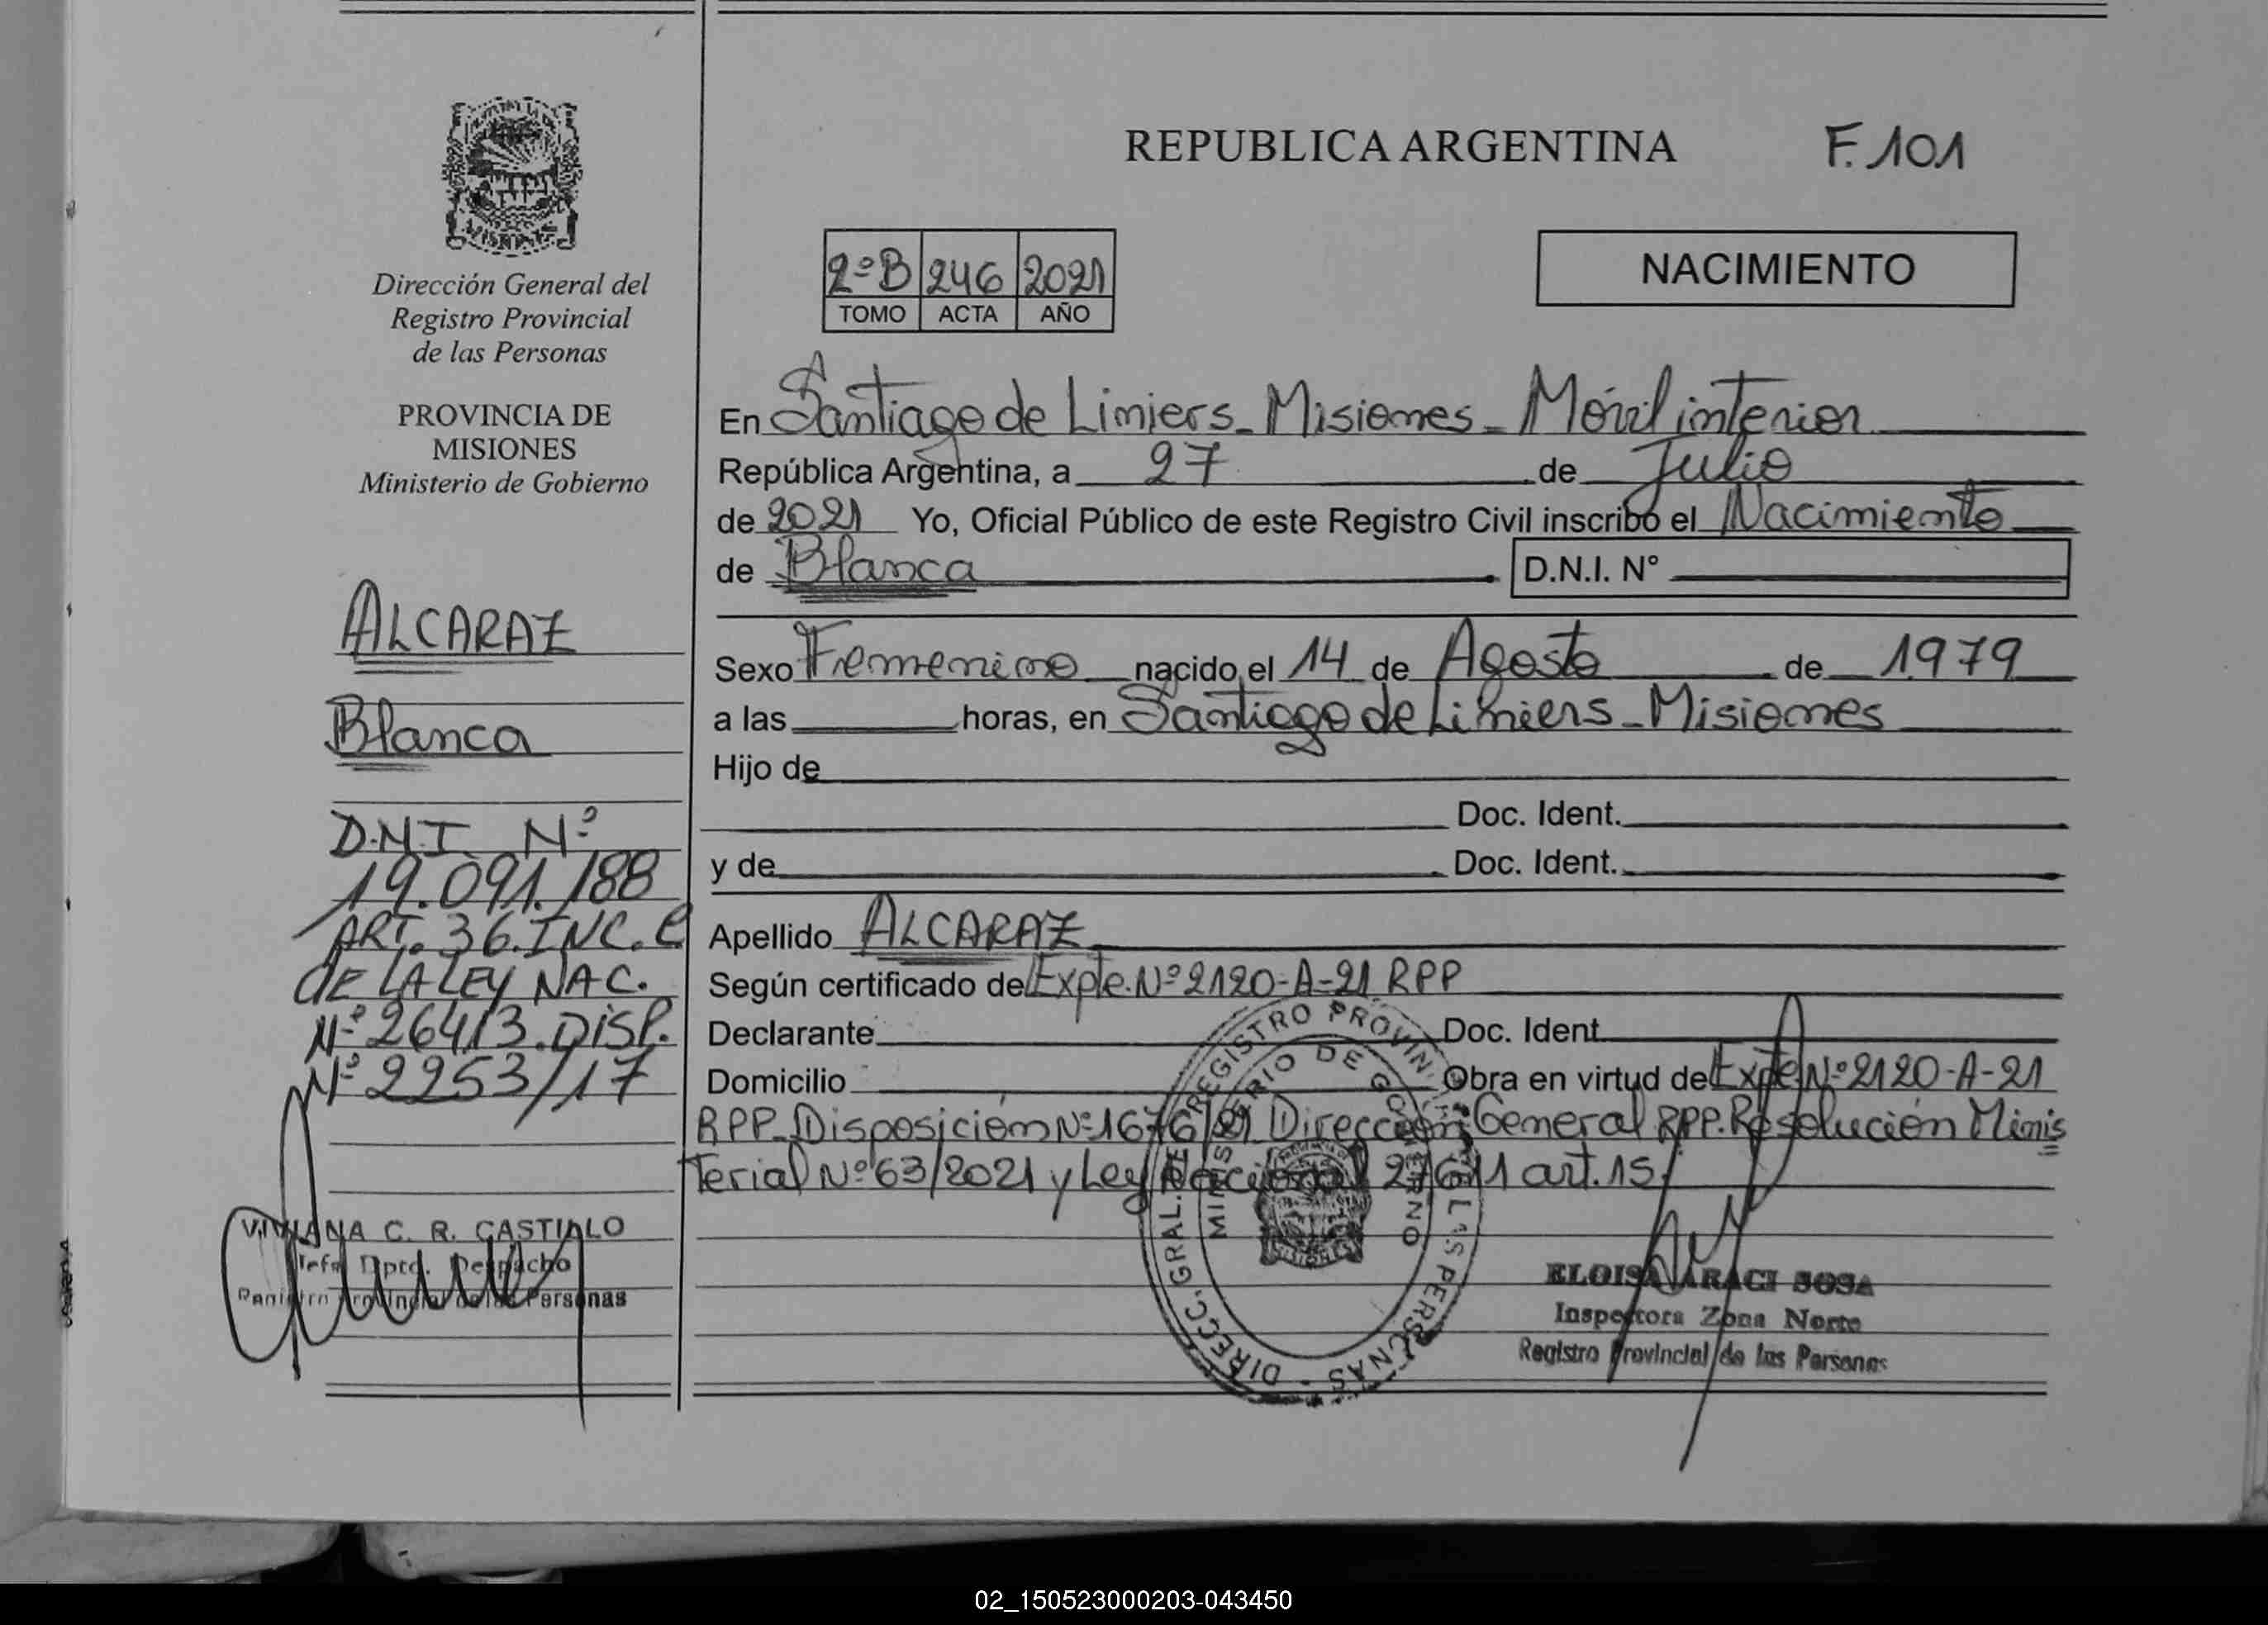 REPUBLICA ARGENTINA
F. 101
Dirección General del
Registro Provincial
de las Personas
PROVINCIA DE
MISIONES
Ministerio de Gobierno
ALCARAZ
Blanca
D.N.I. Nº
19.091.188
ART. 36. INC. C
DE LA LEY NAC.
Nº 26413. DISP.
Nº 2253/17
VIVIANA C. R. CASTILLO
Jefa Dpto. Despacho
Registro Provincial de las Personas
2ºB 246 2021
TOMO ACTA AÑO
NACIMIENTO
En Santiago de Liniers - Misiones - Móvil interior
República Argentina, a 27 de Julio
de 2021 Yo, Oficial Público de este Registro Civil inscribo el Nacimiento
de Blanca D.N.I. N°
Sexo Femenino nacido el 14 de Agosto de 1979
a las horas, en Santiago de Liniers - Misiones
Hijo de
Doc. Ident.
y de Doc. Ident.
Apellido ALCARAZ
Según certificado de Expte. Nº 2120-A-21 RPP
Declarante Doc. Ident.
Domicilio Obra en virtud de Expte Nº 2120-A-21
RPP. Disposición Nº 1676/21 Dirección General RPP. Resolución Minis
terial Nº 63/2021 y Ley Nacional 27611 art. 15.
DIRECC. GRAL. DE REGISTRO PROVINCIAL DE LAS PERSONAS -
MINISTERIO DE GOBIERNO
ELOISA ARACI SOSA
Inspectora Zona Norte
Registro Provincial de las Personas
02_150523000203-043450